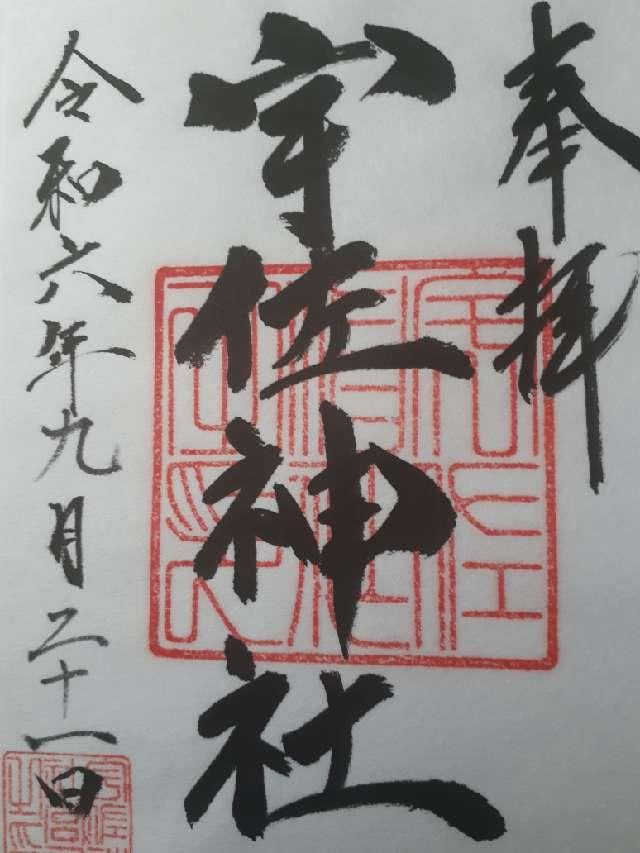 奉拝
宇佐神社
令和六年九月二十一日